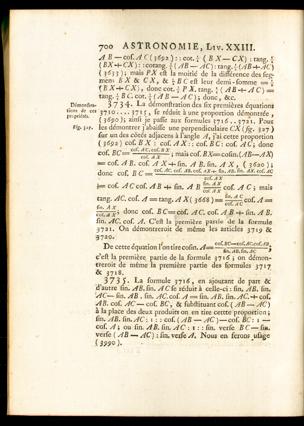 700 ASTRONOMIE, Liv. XXIII.
AB — cof. AC (3692) :: cot. ½ (BX — CX) : tang. ½
(BX + CX) :: cotang. ½ (AB — AC) : tang. ½ (AB + AC)
(3633); mais PX est la moitié de la différence des seg-
mens BX & CX, & ½ BC est leur demi-somme = ½
(BX + CX), donc cot. ½ PX. tang. ½ (AB + AC) =
tang. ½ BC. cot. ½ (AB — AC); donc, &c.
Démonstra-
tions de ces
propriétés.
3734. La démonstration des six premières équations
3710....3715, se réduit à une proportion démontrée,
(3690); ainsi je passe aux formules 3716..3721. Pour
Fig. 327.
les démontrer j'abaisse une perpendiculaire CX (fig. 327)
sur un des côtés adjacens à l'angle A, j'ai cette proportion
(3692) cof. BX : cof. AX :: cof. BC : cof. AC; donc
cof. BC = cof. AC. cof. BX / cof. AX; mais cof. BX = cosin. (AB — AX)
= cof. AB. cof. AX + sin. AB. sin. AX, (3620);
donc cof. BC = cof. AC. cof. AB. cof. AX + sin. AB. sin. AX. cof. AC / cof. AX
= cof. AC cof. AB + sin. AB sin. AX / cof. AX cof. AC; mais
tang. AC. cof. A = tang. AX (3668) = sin. AC / cof. AC cof. A =
sin. AX / cof. AX; donc cof. BC = cof. AC. cof. AB + sin. AB.
sin. AC. cof. A. C'est la première partie de la formule
3721. On démontreroit de même les articles 3719 &
3720.
De cette équation l'on tire cosin. A = cof. BC — cof. AC. cof. AB, / sin. AB. sin. AC
c'est la première partie de la formule 3716; on démon-
treroit de même la première partie des formules 3717
& 3718.
3735. La formule 3716, en ajoutant de part &
d'autre sin. AB. sin. AC se réduit à celle-ci: sin. AB. sin.
AC — sin. AB. sin. AC. cof. A = sin. AB. sin. AC. + cof.
AB. cof. AC — cof. BC, & substituant cof. (AB — AC)
à la place des deux produits on en tire cette proportion;
sin. AB. sin. AC : 1 :: cof. (AB — AC) — cof. BC : 1 —
cof. A; ou sin. AB. sin. AC : 1 :: sin. verse BC — sin.
verse (AB — AC) : sin. verse A. Nous en ferons usage
(3990).